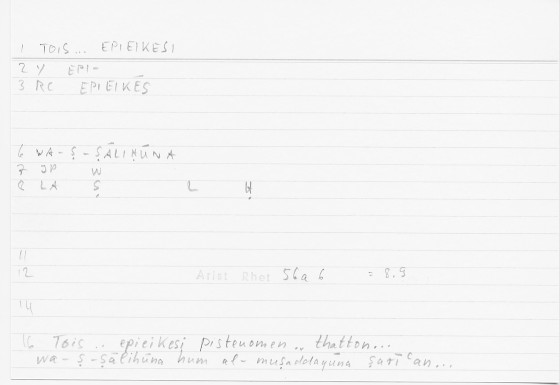 1 TOIS... EPIEIKESI
2 Y EPI-
3 RC EPIEIKĒS
6 WA-Ṣ-ṢĀLIḤŪNA
7 JP W
8 LA Ṣ L Ḥ
11
12 Arist Rhet 56a 6 = 8.9
14
16 Tois .. epieikesi pisteuomen .. thatton...
wa-ṣ-ṣāliḥūna hum al-muṣaddaqūna sarīʿan...